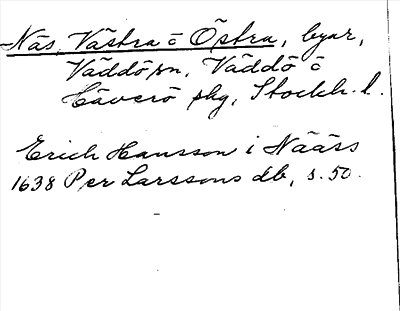 Näs, Västra o Östra, byar,
Väddö sn, Väddö o
Häverö skg, Stockh. l.
Erich Hansson i Nääss
1638 Per Larssons db, s. 50.